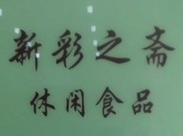 新彩之斋
休闲食品